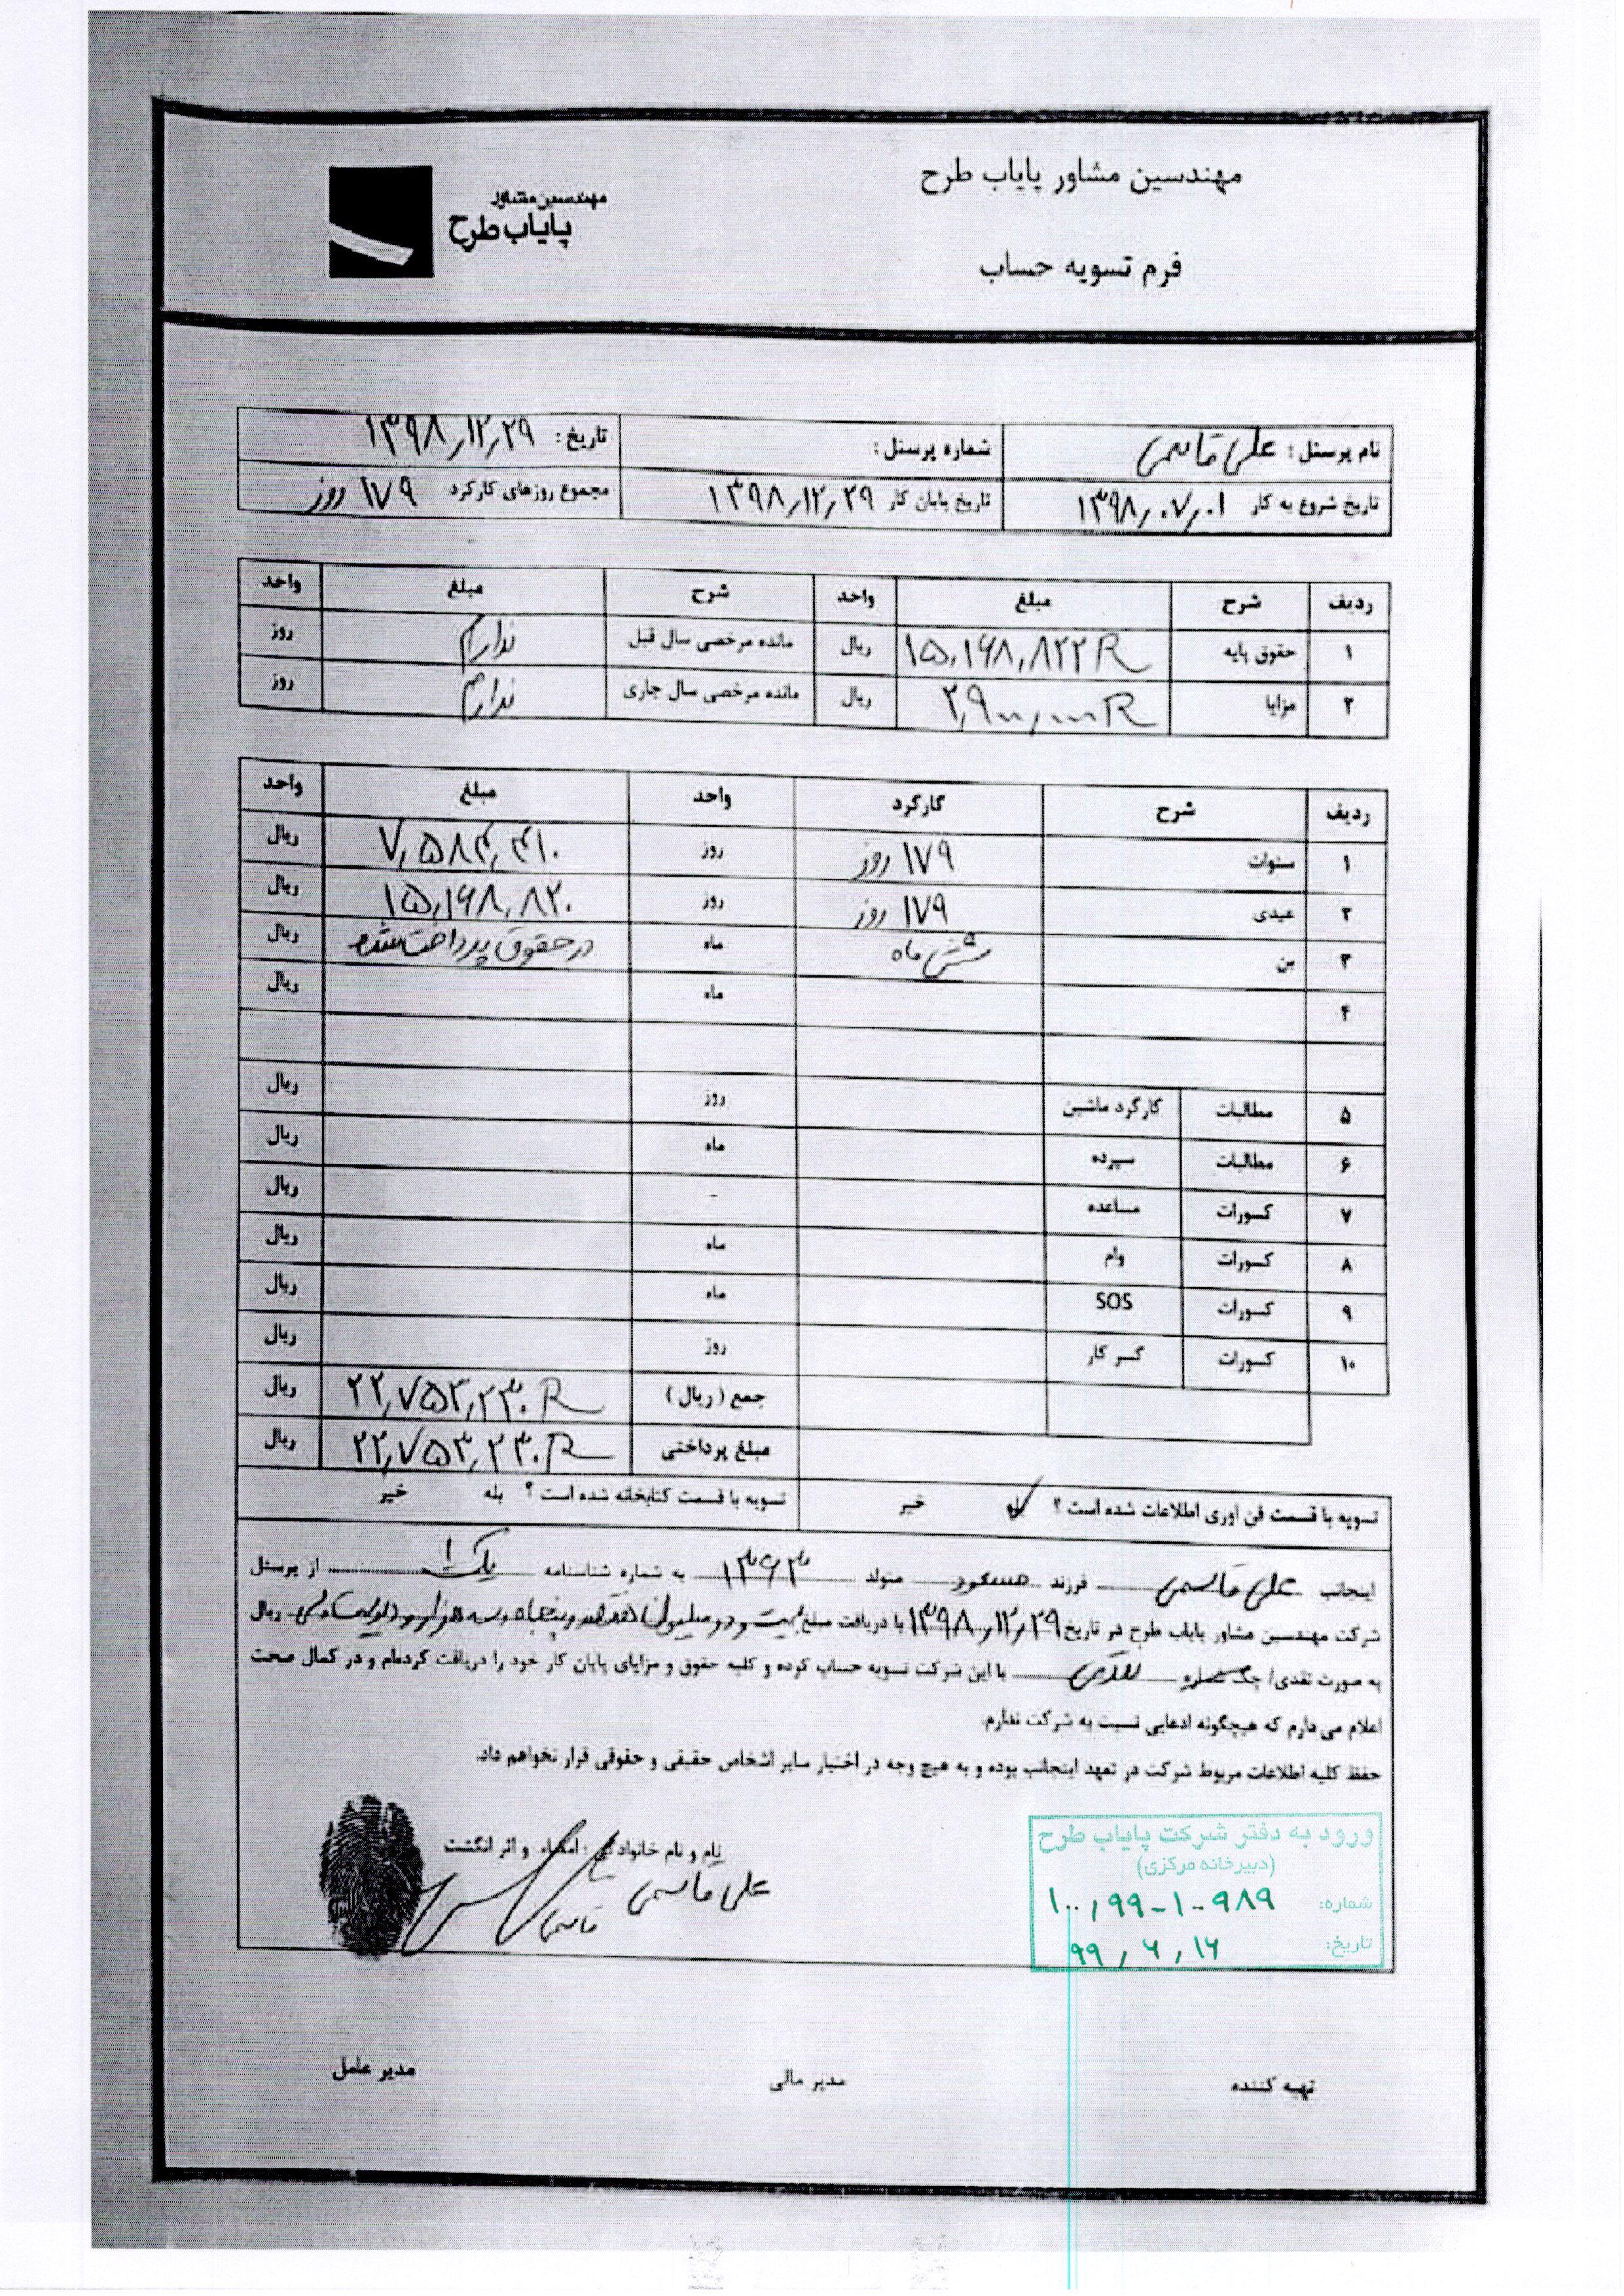 مهندسین مشاور پایاب طرح
مهندسین مشاور
پایاب طرح
فرم تسویه حساب
نام پرسنل : علی قاسمی شماره پرسنل : تاریخ : ۱۳۹۸,۱۲,۲۹
تاریخ شروع به کار ۱۳۹۸,۰۷,۰۱ تاریخ پایان کار ۱۳۹۸,۱۲,۲۹ مجموع روزهای کارکرد ۱۷۹ روز
ردیف شرح مبلغ واحد شرح مبلغ واحد
۱ حقوق پایه ۱۵,۱۶۸,۸۲۲R ریال مانده مرخصی سال قبل ندارم روز
۲ مزایا ۲,۹۰۰,۰۰۰R ریال مانده مرخصی سال جاری ندارم روز
ردیف شرح کارکرد واحد مبلغ واحد
۱ سنوات ۱۷۹ روز روز ۷,۵۸۴,۴۱۰ ریال
۲ عیدی ۱۷۹ روز روز ۱۵,۱۶۸,۸۲۰ ریال
۳ بن شش ماه ماه در حقوق پرداخت شده ریال
۴ ماه ریال
۵ مطالبات کارکرد ماشین روز ریال
۶ مطالبات سپرده ماه ریال
۷ کسورات مساعده - ریال
۸ کسورات وام ماه ریال
۹ کسورات SOS ماه ریال
۱۰ کسورات کسر کار روز ریال
جمع (ریال) ۲۲,۷۵۳,۲۳۰R ریال
مبلغ پرداختی ۲۲,۷۵۳,۲۳۰R ریال
تسویه با قسمت فن اوری اطلاعات شده است ؟ بله خیر تسویه با قسمت کتابخانه شده است ؟ بله خیر
اینجانب علی قاسمی فرزند مسعود متولد ۱۳۶۳ به شماره شناسنامه یک ۱ از پرسنل
شرکت مهندسین مشاور پایاب طرح در تاریخ ۱۳۹۸,۱۲,۲۹ با دریافت مبلغ بیست و دو میلیون هفتصد و پنجاه و سه هزار و دویست و سی ریال
به صورت نقدی/ چک شماره نقدی با این شرکت تسویه حساب کرده و کلیه حقوق و مزایای پایان کار خود را دریافت کرده‌ام و در کمال صحت
اعلام می دارم که هیچگونه ادعایی نسبت به شرکت ندارم.
حفظ کلیه اطلاعات مربوط شرکت در تعهد اینجانب بوده و به هیچ وجه در اختیار سایر اشخاص حقیقی و حقوقی قرار نخواهم داد.
نام و نام خانوادگی : امضاء و اثر انگشت
علی قاسمی
ورود به دفتر شرکت پایاب طرح
(دبیرخانه مرکزی)
شماره: ۱۰۰,۹۹-۱-۹۸۹
تاریخ: ۹۹,۶,۱۶
تهیه کننده مدیر مالی مدیر عامل